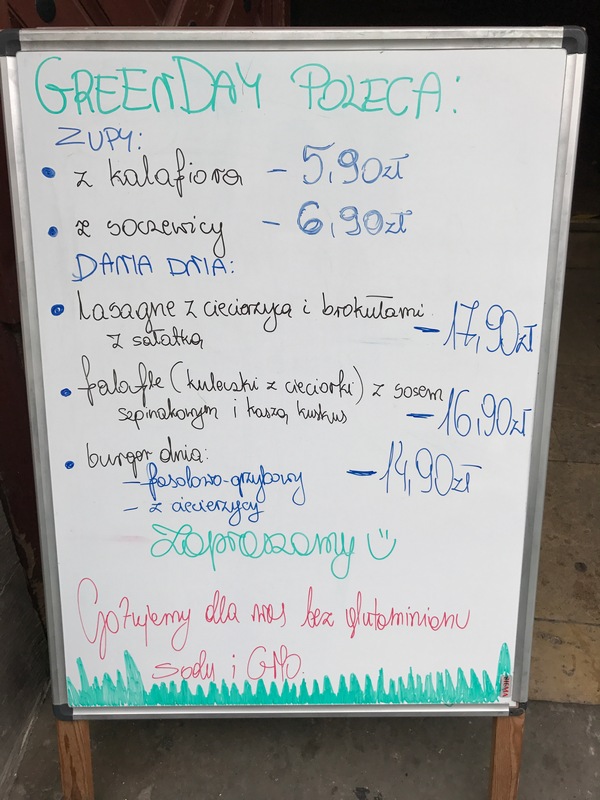 GREENDAY POLECA:
ZUPY:
• z kalafiora - 5,90zł
• z soczewicy - 6,90zł
DANIA DNIA:
• Lasagne z ciecierzycą i brokułami - 17,90zł
z sałatką
• falafle (kuleczki z cieciorki) z sosem
szpinakowym i kaszą kuskus - 16,90zł
• burger dnia: - 14,90zł
- fasolowo-grzybowy
- z ciecierzycy
Zapraszamy
Gotujemy dla was bez glutaminianu
sodu i GMO.